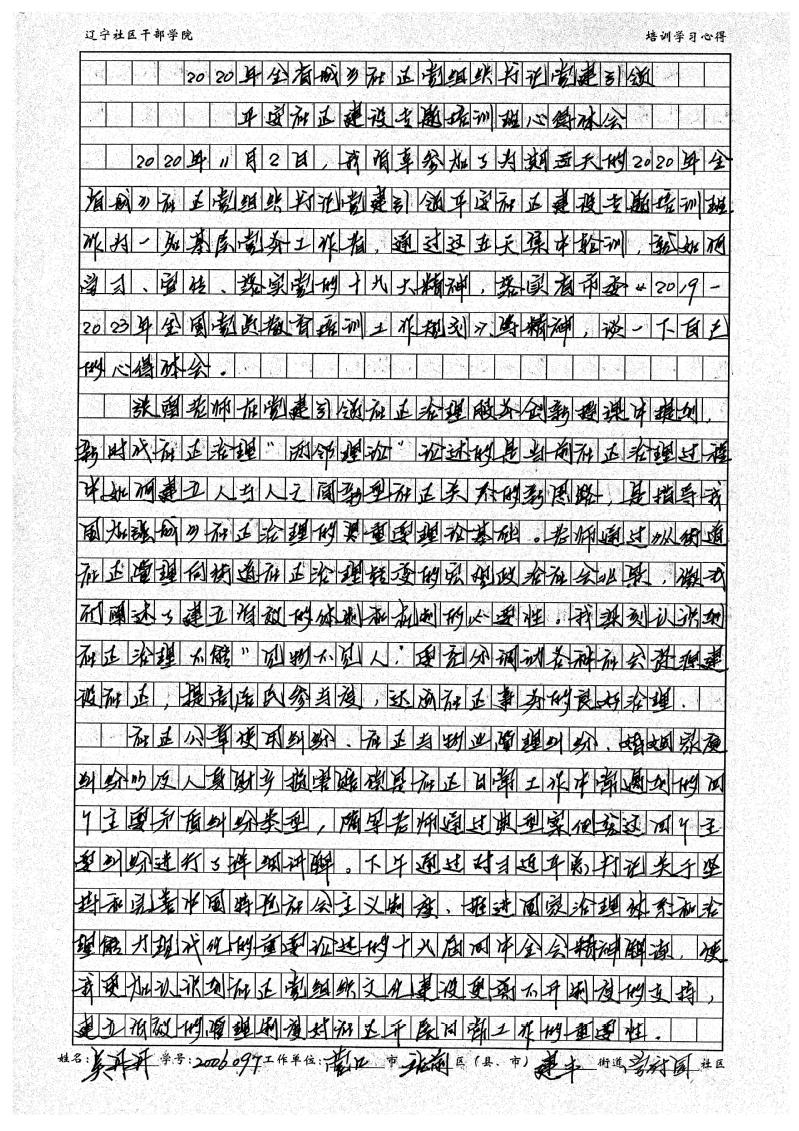 辽宁社区干部学院 培训学习心得
2020年全省城乡社区党组织书记党建引领
平安社区建设专题培训班心得体会
2020年11月2日，我有幸参加了为期五天的2020年全
省城乡社区党组织书记党建引领平安社区建设专题培训班
作为一名基层党务工作者，通过这五天集中轮训，就如何
学习、宣传、落实党的十九大精神，落实省市委《2019-
2023年全国党员教育培训工作规划》等精神，谈一下自己
的心得体会。
张 老师在党建引领社区治理服务创新授课中提到，
新时代社区治理“两邻理论”论述的是当前社区治理过程
中如何建立人与人之间新型社区关系的新思路，是指导我
国加强城乡社区治理的 重要理论基础。老师通过从街道
社区管理向街道社区治理转变的宏观政治社会 景，做我
们阐述了建立有效的体制和机制的必要性。我深刻认识到
社区治理不能“见物不见人”要充分调动各种社会资源建
设社区，提高居民参与度，达成社区事务的良好治理.
社区公章使用纠纷、社区与物业管理纠纷、婚姻家庭
纠纷以及人身财产损害赔偿是社区日常工作中常遇到的四
个主要矛盾纠纷类型，隋军老师通过典型案例给这四个主
要纠纷进行了详细讲解。下午通过对习近平总书记关于坚
持和完善中国特色社会主义制度、推进国家治理体系和治
理能力现代化的重要论述的十九届四中全会精神解读，使
我更加认识到社区党组织文化建设更离不开制度的支持，
建立有效的管理制度对社区开展日常工作的重要性。
姓名： 丹丹 学号：2006097 工作单位：营口 市 站前 区（县、市） 建丰 街道 学府园 社区